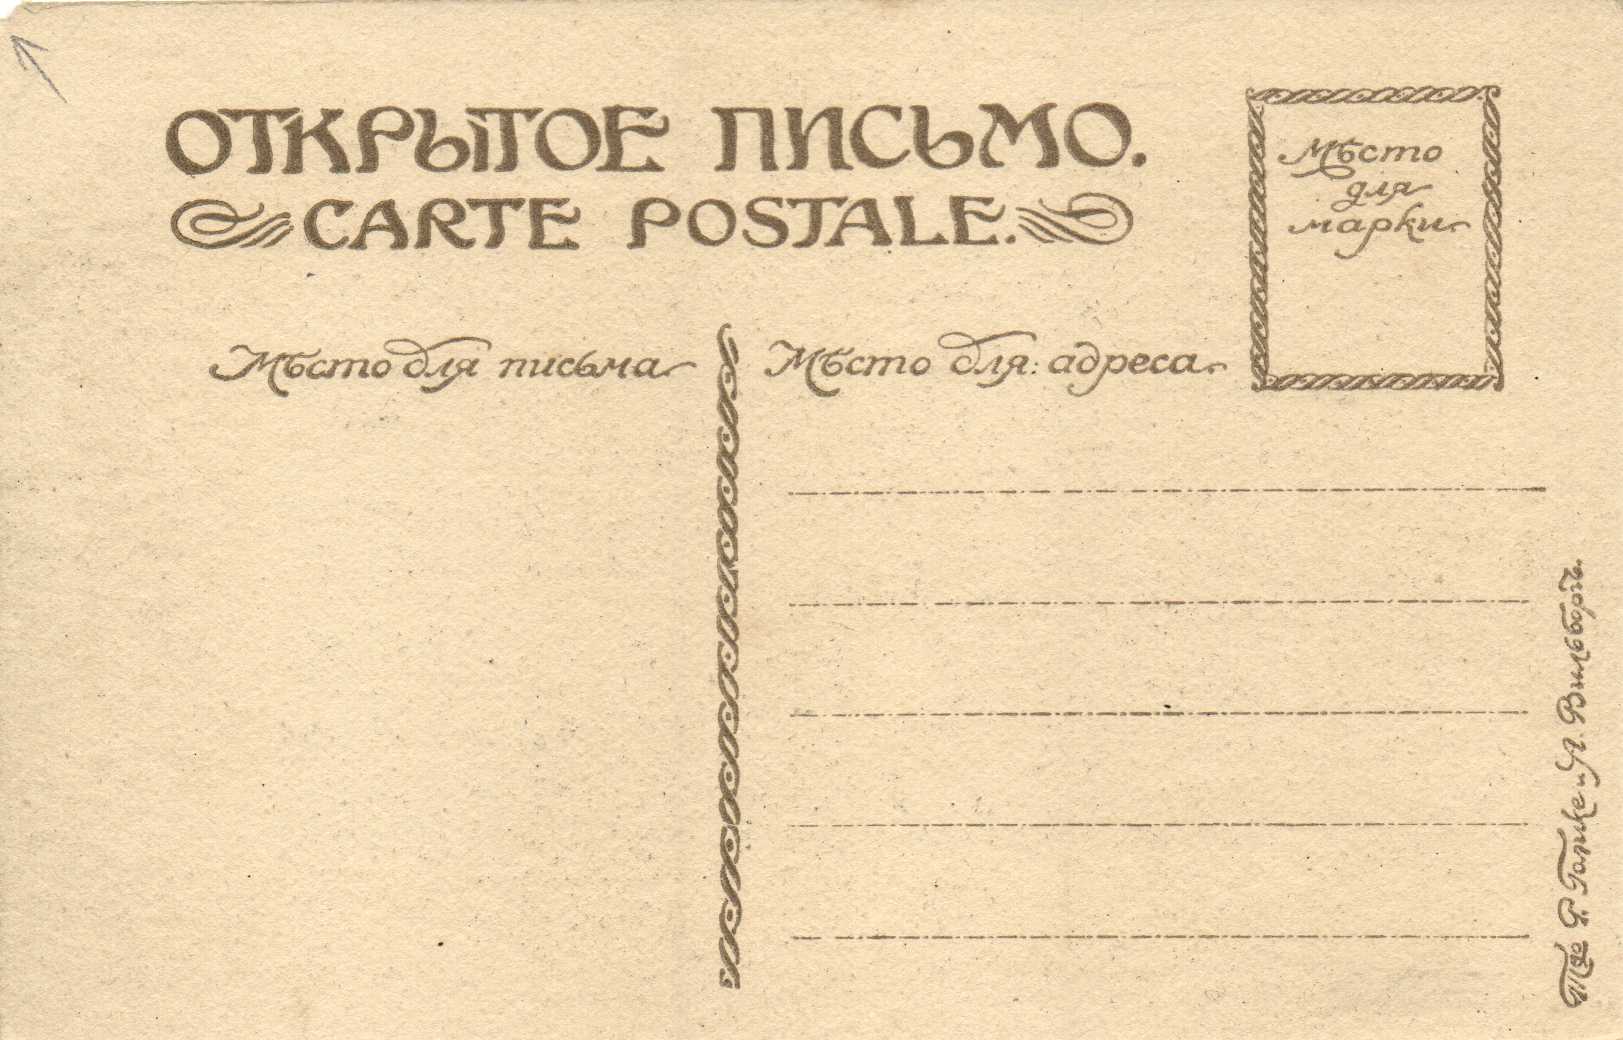 ОТКРЫТОЕ ПИСЬМО.
CARTE POSTALE.
Мѣсто
для
марки
Мѣсто для письма
Мѣсто для: адреса
Т-во Р. Голике и А. Вильборгъ.